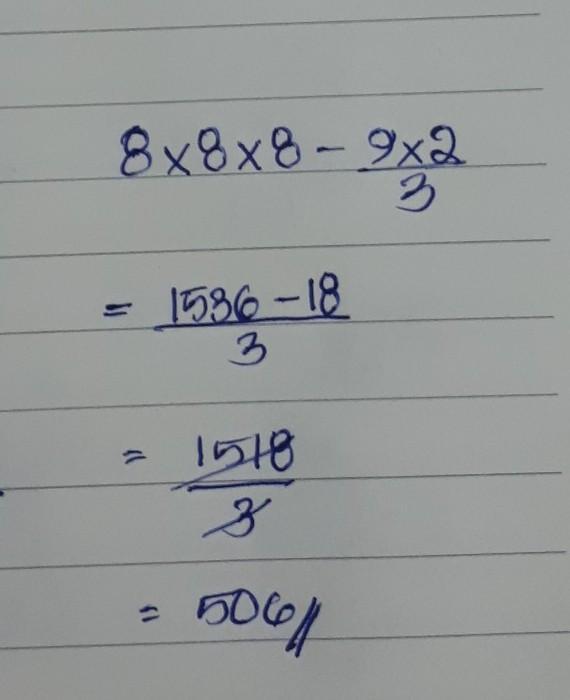 8×8×8 - 9×2
3
= 1536 - 18
3
= 1518
3
= 506//